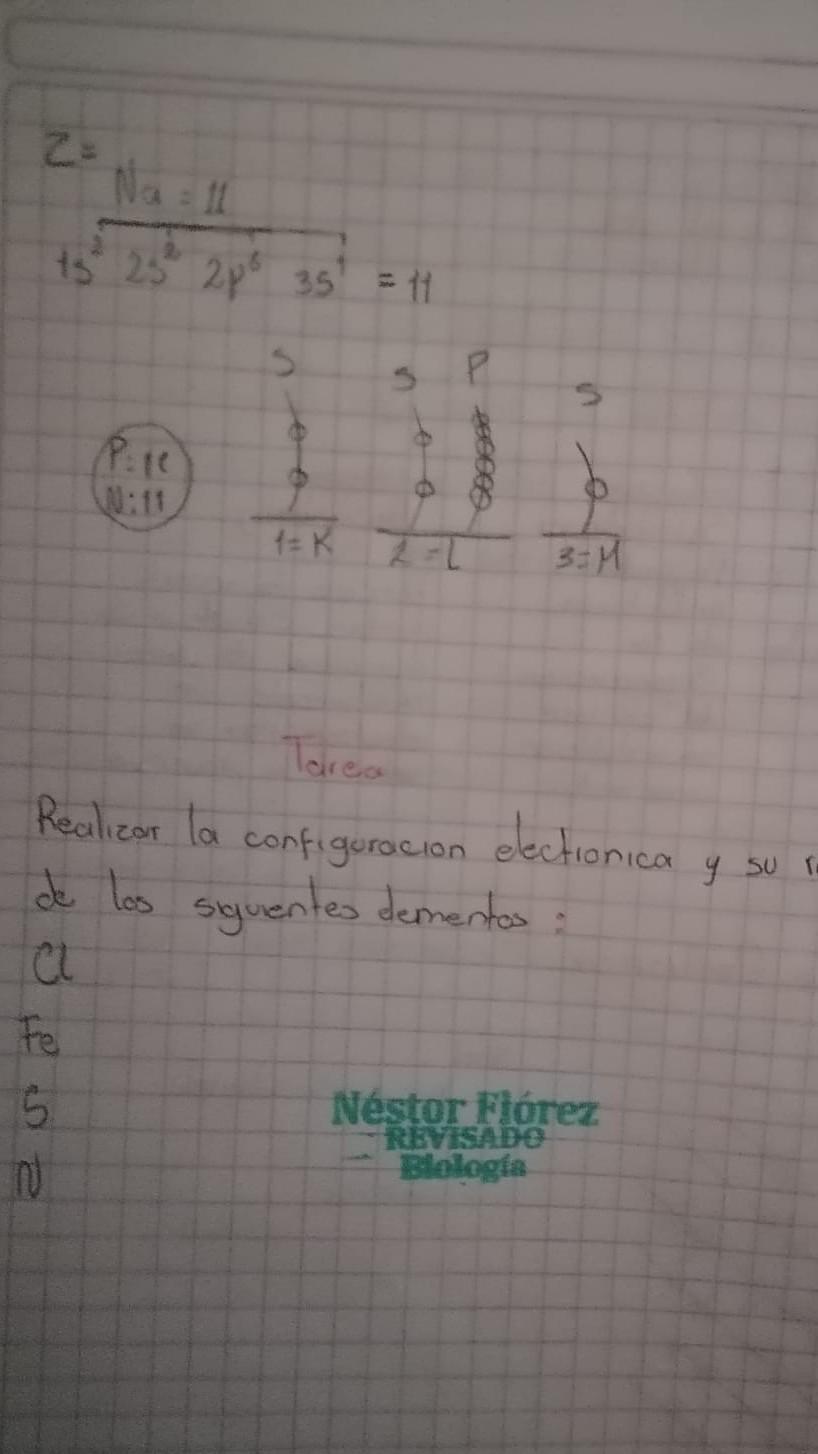 Z=
Na = 11
1s² 2s² 2p⁶ 3s¹ = 11
S S P S
P: 11
N: 11
1=K 2=L 3=M
Tarea
Realizar la configuracion electronica y su
de los siguientes elementos:
Cl
Fe
S
N
Néstor Flórez
REVISADO
Biología